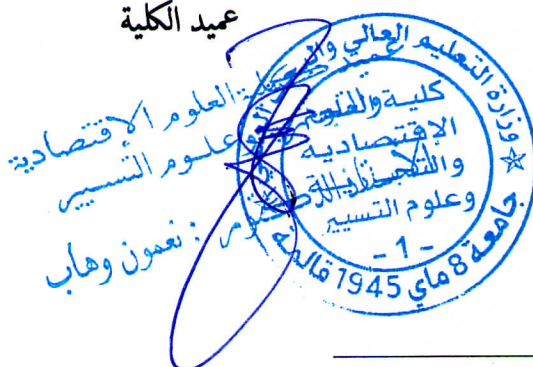 عميد الكلية
وزارة التعليم العالي والبحث
كلية العلوم
الإقتصادية
والتجارية
وعلوم التسيير
- 1 -
جامعة 8 ماي 1945 قالمة
عميد كلية العلوم الإقتصادية
وعلوم التسيير
: نعمون وهاب